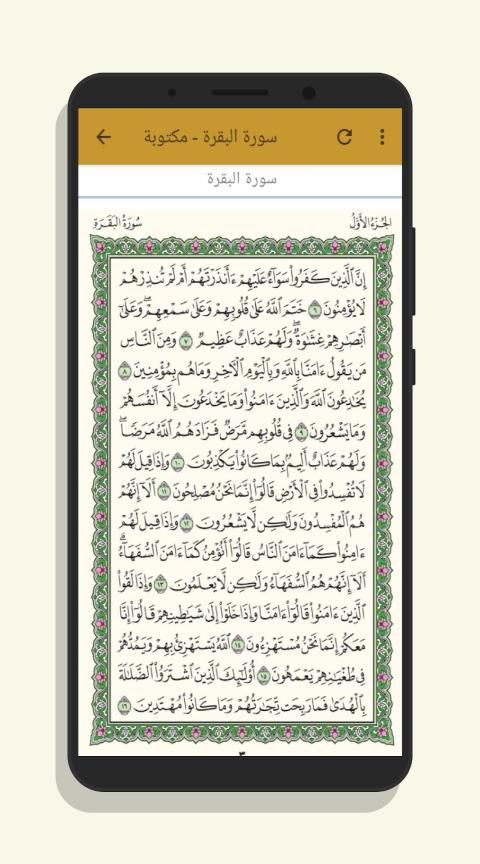 سورة البقرة - مكتوبة
سورة البقرة
الجُزءُ الأَوَّلُ سُورَةُ البَقَرَةِ
إِنَّ ٱلَّذِينَ كَفَرُواْ سَوَآءٌ عَلَيْهِمْ ءَأَنذَرْتَهُمْ أَمْ لَمْ تُنذِرْهُمْ
لَا يُؤْمِنُونَ ٦ خَتَمَ ٱللَّهُ عَلَىٰ قُلُوبِهِمْ وَعَلَىٰ سَمْعِهِمْۖ وَعَلَىٰٓ
أَبْصَٰرِهِمْ غِشَٰوَةٌۖ وَلَهُمْ عَذَابٌ عَظِيمٌ ٧ وَمِنَ ٱلنَّاسِ
مَن يَقُولُ ءَامَنَّا بِٱللَّهِ وَبِٱلْيَوْمِ ٱلْأَخِرِ وَمَا هُم بِمُؤْمِنِينَ ٨
يُخَٰدِعُونَ ٱللَّهَ وَٱلَّذِينَ ءَامَنُواْ وَمَا يَخْدَعُونَ إِلَّآ أَنفُسَهُمْ
وَمَا يَشْعُرُونَ ٩ فِى قُلُوبِهِم مَّرَضٌ فَزَادَهُمُ ٱللَّهُ مَرَضًاۖ
وَلَهُمْ عَذَابٌ أَلِيمٌۢ بِمَا كَانُواْ يَكْذِبُونَ ١٠ وَإِذَا قِيلَ لَهُمْ
لَا تُفْسِدُواْ فِى ٱلْأَرْضِ قَالُوٓاْ إِنَّمَا نَحْنُ مُصْلِحُونَ ١١ أَلَآ إِنَّهُمْ
هُمُ ٱلْمُفْسِدُونَ وَلَٰكِن لَّا يَشْعُرُونَ ١٢ وَإِذَا قِيلَ لَهُمْ
ءَامِنُواْ كَمَآ ءَامَنَ ٱلنَّاسُ قَالُوٓاْ أَنُؤْمِنُ كَمَآ ءَامَنَ ٱلسُّفَهَآءُۗ
أَلَآ إِنَّهُمْ هُمُ ٱلسُّفَهَآءُ وَلَٰكِن لَّا يَعْلَمُونَ ١٣ وَإِذَا لَقُواْ
ٱلَّذِينَ ءَامَنُواْ قَالُوٓاْ ءَامَنَّا وَإِذَا خَلَوْاْ إِلَىٰ شَيَٰطِينِهِمْ قَالُوٓاْ إِنَّا
مَعَكُمْ إِنَّمَا نَحْنُ مُسْتَهْزِءُونَ ١٤ ٱللَّهُ يَسْتَهْزِئُ بِهِمْ وَيَمُدُّهُمْ
فِى طُغْيَٰنِهِمْ يَعْمَهُونَ ١٥ أُوْلَٰٓئِكَ ٱلَّذِينَ ٱشْتَرَوُاْ ٱلضَّلَٰلَةَ
بِٱلْهُدَىٰ فَمَا رَبِحَت تِّجَٰرَتُهُمْ وَمَا كَانُواْ مُهْتَدِينَ ١٦
٣